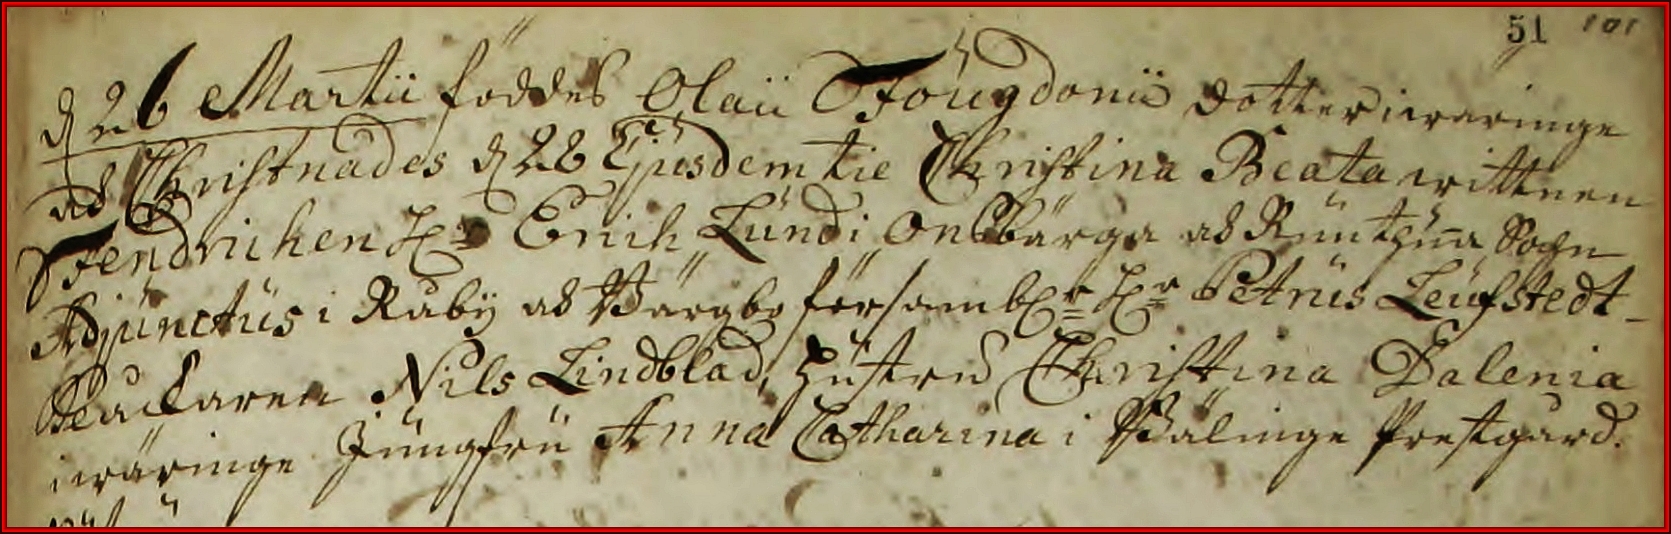 51 101
d 26 Martii föddes Olaii Fougdonii dotter i wäringe
och Christnades d 28 Ejusdem tie Christina Beata wittnen
Fendrichen Hr Erich Lund i Onsbärga och Runthuna Sogn
Adjunctus i Råby och Wärgbo församl: Hr Petrus Leufstedt
Nils Lindblad, hustru Christina Dalenia
i wäringe Jungfru Anna Catharina i Wälinge Prestgård.